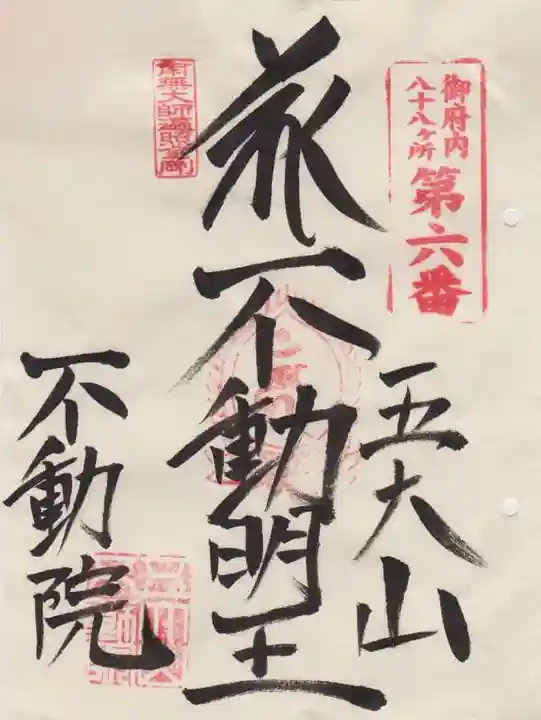 御府内
八十八ヶ所
第六番
五大山
不動明王
不動院
南無大師遍照金剛